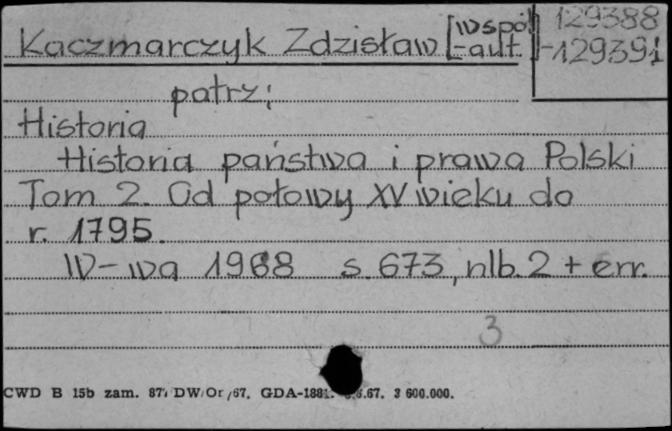 129388
Kaczmarczyk Zdzisław [współ
-aut.] -129391
patrz:
Historia
Historia państwa i prawa Polski
Tom 2. Od połowy XV wieku do
r. 1795.
W-wa 1968 s. 673, nlb. 2 + err.
3
CWD B 15b zam. DW/Or/67. .67. 3 600.000.